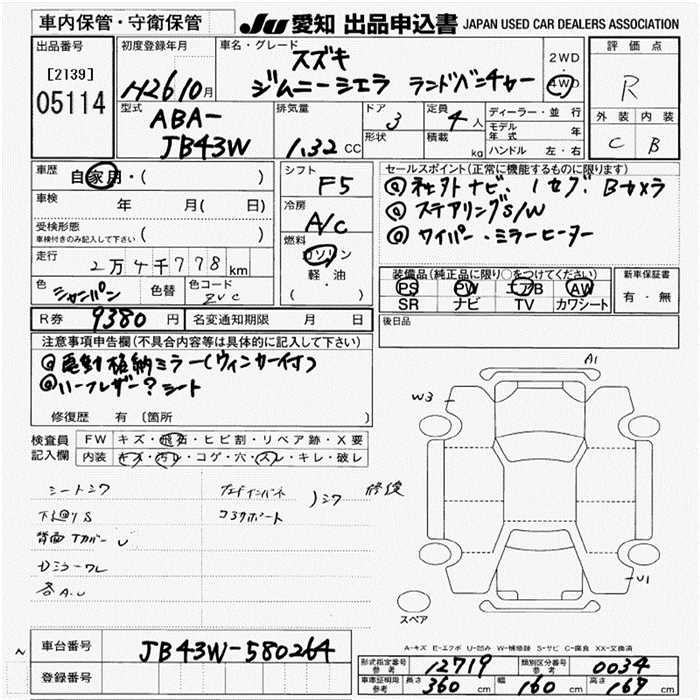 車内保管・守衛保管
JU 愛知 出品申込書 JAPAN USED CAR DEALERS ASSOCIATION
出品番号
[2139]
05114
初度登録年月
H26 10月
車名・グレード
スズキ
ジムニーシエラ ランドベンチャー
2WD
・
4WD
評価点
R
外装 内装
C B
型式
ABA-
JB43W
排気量
1.32 CC
ドア
3
形状
定員
4人
積載
kg
ディーラー・並行
モデル年式 年
ハンドル 左・右
車歴
自家用・( )
車検
年 月( 日)
受検形態
車検付きのみ記入して下さい ( )
走行
2万4千778km
色
シャンパン
色替
色コード
ZVC
シフト
F5
冷房
A/C
燃料
ガソリン
軽・油
( )
セールスポイント(正常に機能するものに限ります)
@社外ナビ、1セグ Bカメラ
@ステアリングS/W
@ワイパー・ミラーヒーター
装備品(純正品に限り○をつけてください)
PS PW エアB AW
SR ナビ TV カワシート
新車保証書
有・無
後日品
R券 9380円
名変通知期限 月 日
注意事項申告欄(不具合内容等は具体的に記入して下さい)
@電動格納ミラー(ウィンカー付)
@ハーフレザー?シート
修復歴 有 〔箇所 〕
検査員
記入欄
FW キズ・飛石・ヒビ割・リペア跡・X要
内装 キズ・汚レ・コゲ・穴・スレ・キレ・破レ
シートシワ
下廻りS
背面Tカバー U
Dミラーワレ
各A.U
コアサポート
シワ 修復
A1
W3
U1
スペア
A-キズ E-エクボ U-凹み W-補修跡 S-サビ C-腐食 XX-交換済
車台番号
JB43W-580264
登録番号
型式指定番号
参考
12719
類別区分番号
参考
0034
車庫証明用
参考
長さ 360 cm 幅 160 cm 高さ 167 cm